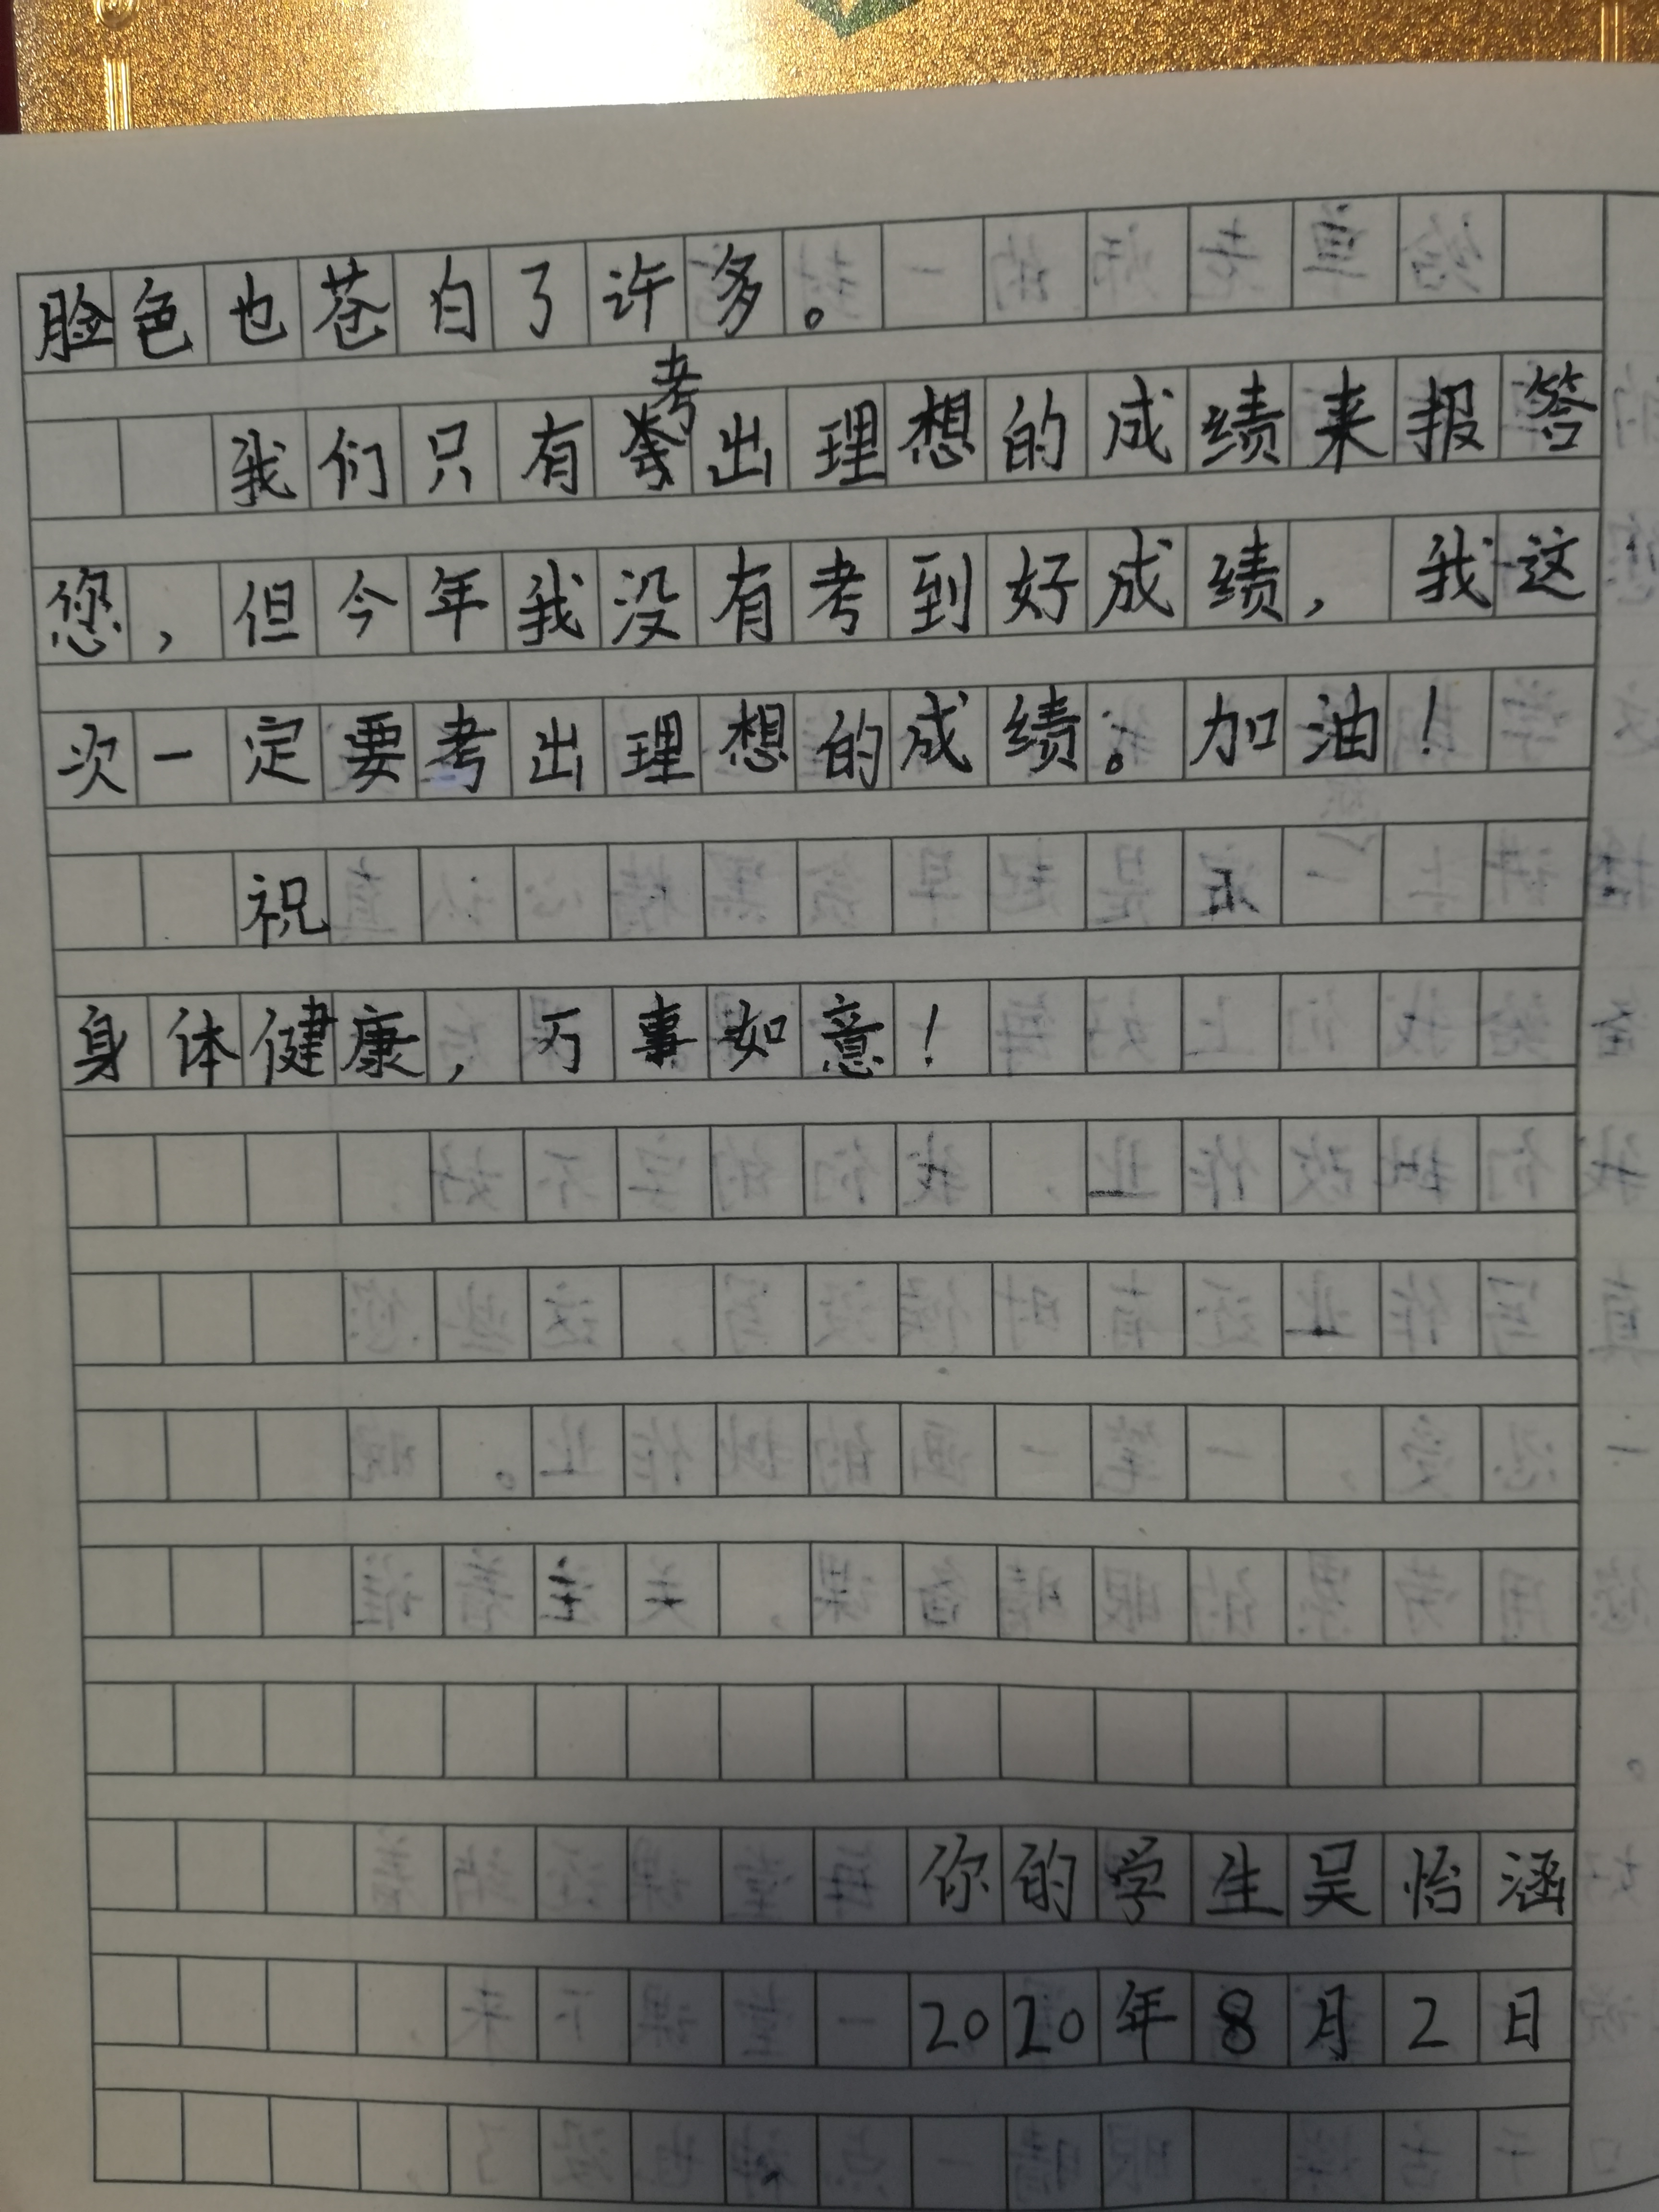 脸色也苍白了许多。
我们只有考出理想的成绩来报答
您，但今年我没有考到好成绩，我这
次一定要考出理想的成绩。加油！
祝
身体健康，万事如意！
你的学生吴怡涵
2020年8月2日